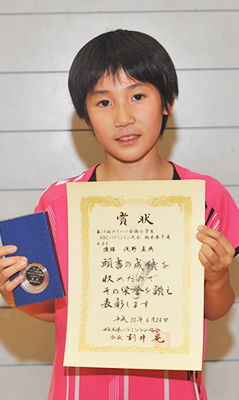 賞状
第19回ダイハツ全国小学生
ABCバドミントン大会 栃木県予選
優勝 浅野 真央
頭書の成績を
収めたので
その栄誉を讃え
表彰します
平成30年6月24日
栃木県バドミントン協会
会長